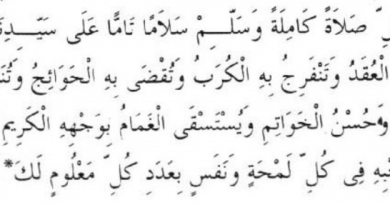 صَلاَةً كَامِلَةً وَسَلِّمْ سَلاَمًا تَامًّا عَلَى
الْعُقَدُ وَتَنْفَرِجُ بِهِ الْكُرَبُ وَتُقْضَى بِهِ الْحَوَائِجُ
حُسْنُ الْخَوَاتِمِ وَيُسْتَسْقَى الْغَمَامُ بِوَجْهِهِ الْكَرِيمِ
فِى كُلِّ لَمْحَةٍ وَنَفَسٍ بِعَدَدِ كُلِّ مَعْلُومٍ لَكَ *